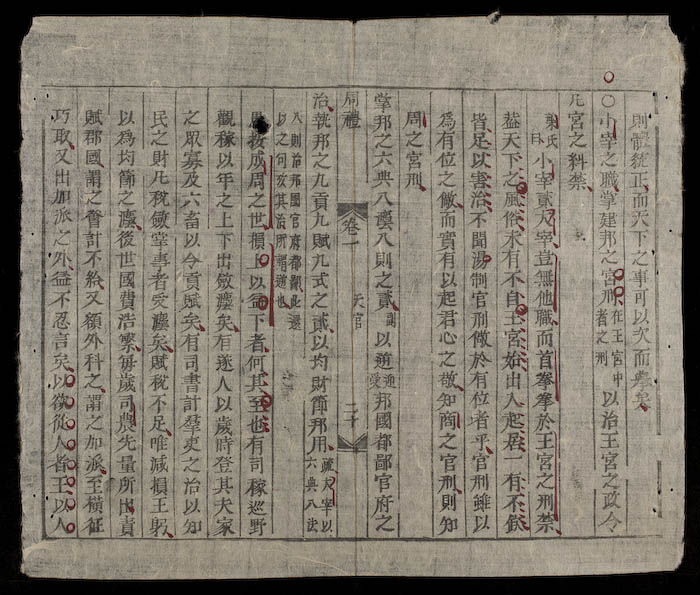 則體統正而天下之事可以次而舉矣
○小宰之職掌建邦之宮刑在王宮中者之刑以治王宮之政令
凡宮之糾禁
氏曰小宰貳大宰豈無他職而首拳拳於王宮之刑禁
蓋天下之風俗未有不自王宮始出入起居一有不欽
皆足以害治不聞湯制官刑儆於有位者乎官刑雖以
為有位之儆而實有以起君心之敬知商之官刑則知
周之宮刑
掌邦之六典八灋八則之貳副以逆迎受邦國都鄙官府之
周禮 卷一 天官 二十
治執邦之九貢九賦九式之貳以均財節邦用疏大宰以六典八法
八則治邦國官府都鄙此還以之句攷其治所謂逆也
愚按成周之世損上以益下者何其至也有司稼巡野
觀稼以年之上下出斂灋矣有遂人以歲時登其夫家
之眾寡及六畜以令貢賦矣有司書計羣吏之治以知
民之財凡稅斂掌事者受灋矣賦稅不足唯減損王躬
以為均節之灋後世國費浩繁每歲司農先量所出責
賦郡國謂之會計不給又額外科之謂之加派至橫征
巧取又出加派之外益不忍言矣以欲從人者王以人